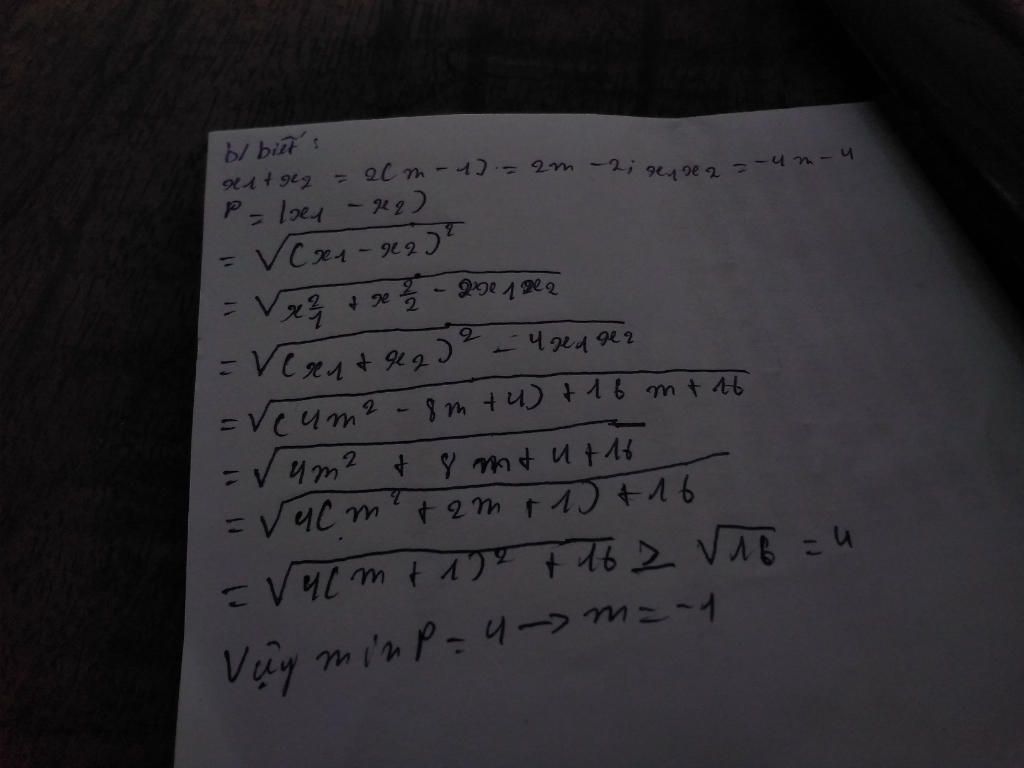 b/ biết:
x1 + x2 = 2(m - 1) = 2m - 2; x1x2 = -4m - 4
P = |x1 - x2)
= √(x1 - x2)²
= √x₁² + x₂² - 2x1x2
= √(x1 + x2)² - 4x1x2
= √(4m² - 8m + 4) + 16 m + 16
= √4m² + 8 m + 4 + 16
= √4(m² + 2m + 1) + 16
= √4(m + 1)² + 16 ≥ √16 = 4
Vậy min P = 4 → m = -1